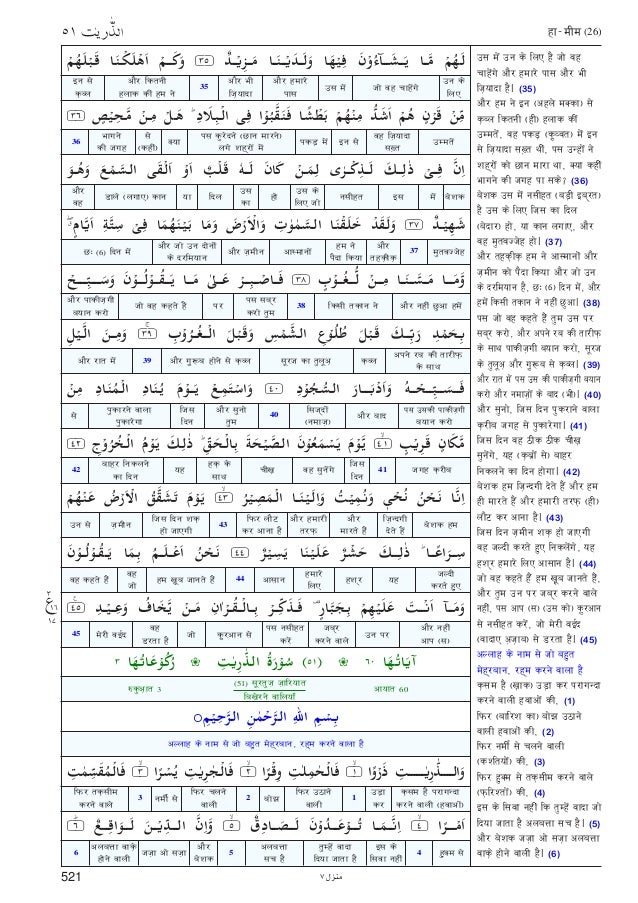 हा-मीम (26)
الذّٰرِيٰت ٥١
لَهُمْ مَّا يَشَآءُوْنَ فِيْهَا وَلَدَيْنَا مَزِيْدٌ ٣٥ وَكَمْ اَهْلَكْنَا قَبْلَهُمْ
उन के लिए | जो वह चाहेंगे | उस में | और हमारे पास | और भी ज़ियादा | 35 | और कितनी हलाक कीं हम ने | इन से क़ब्ल
مِّنْ قَرْنٍ هُمْ اَشَدُّ مِنْهُمْ بَطْشًا فَنَقَّبُوْا فِى الْبِلَادِ هَلْ مِنْ مَّحِيْصٍ ٣٦
उम्मतें | वह ज़ियादा सख़्त | इन से | पकड़ में | पस कुरेदने (छान मारने) लगे शहरों में | क्या | से (कहीं) | भागने की जगह | 36
اِنَّ فِىْ ذٰلِكَ لَذِكْرٰى لِمَنْ كَانَ لَهٗ قَلْبٌ اَوْ اَلْقَى السَّمْعَ وَهُوَ
बेशक | में | इस | नसीहत | उस के लिए जो | हो | उस का | दिल | या | डाले (लगाए) कान | और वह
شَهِيْدٌ ٣٧ وَلَقَدْ خَلَقْنَا السَّمٰوٰتِ وَالْاَرْضَ وَمَا بَيْنَهُمَا فِىْ سِتَّةِ اَيَّامٍ
मुतवज्जेह | 37 | और तहक़ीक़ | हम ने पैदा किया | आस्मानों | और ज़मीन | और जो उन दोनों के दरमियान | छः (6) दिन में
وَّمَا مَسَّنَا مِنْ لُّغُوْبٍ ٣٨ فَاصْبِرْ عَلٰى مَا يَقُوْلُوْنَ وَسَبِّحْ
और नहीं छुआ हमें | किसी तकान ने | 38 | पस सब्र करो तुम | पर | जो वह कहते हैं | और पाकीज़गी बयान करो
بِحَمْدِ رَبِّكَ قَبْلَ طُلُوْعِ الشَّمْسِ وَقَبْلَ الْغُرُوْبِ ٣٩ وَمِنَ الَّيْلِ
अपने रब की तारीफ़ के साथ | क़ब्ल | सूरज का तुलूअ | और ग़ुरूब होने से क़ब्ल | 39 | और रात में
فَسَبِّحْهُ وَاَدْبَارَ السُّجُوْدِ ٤٠ وَاسْتَمِعْ يَوْمَ يُنَادِ الْمُنَادِ مِنْ
पस उसकी पाकीज़गी बयान करो | और बाद | सिज्दों (नमाज़) | 40 | और सुनो तुम | जिस दिन | पुकारने वाला पुकारेगा | से
مَّكَانٍ قَرِيْبٍ ٤١ يَّوْمَ يَسْمَعُوْنَ الصَّيْحَةَ بِالْحَقِّ ذٰلِكَ يَوْمُ الْخُرُوْجِ ٤٢
जगह क़रीब | 41 | जिस दिन | वह सुनेंगे | चीख़ | हक़ के साथ | यह | बाहर निकलने का दिन | 42
اِنَّا نَحْنُ نُحْىٖ وَنُمِيْتُ وَاِلَيْنَا الْمَصِيْرُ ٤٣ يَوْمَ تَشَقَّقُ الْاَرْضُ عَنْهُمْ
बेशक हम | ज़िन्दगी देते हैं | और मारते हैं | और हमारी तरफ़ | फिर लौट कर आना है | 43 | जिस दिन शक़ हो जाएगी | ज़मीन | उन से
سِرَاعًا ذٰلِكَ حَشْرٌ عَلَيْنَا يَسِيْرٌ ٤٤ نَحْنُ اَعْلَمُ بِمَا يَقُوْلُوْنَ
जल्दी करते हुए | यह | हश्र | हमारे लिए | आसान | 44 | हम ख़ूब जानते हैं | वह जो | वह कहते हैं
وَمَآ اَنْتَ عَلَيْهِمْ بِجَبَّارٍ فَذَكِّرْ بِالْقُرْاٰنِ مَنْ يَّخَافُ وَعِيْدِ ٤٥
और नहीं आप (स) | उन पर | जब्र करने वाले | पस नसीहत करें | क़ुरआन से | जो | वह डरता है | मेरी वईद | 45
٣ ع ١٦ ١٧
اٰيَاتُهَا ٦٠ ❀ (٥١) سُوْرَةُ الذّٰرِيٰتِ ❀ رُكُوْعَاتُهَا ٣
आयात 60 | (51) सूरतुज़ ज़ारियात बिखेरने वालियाँ | रुकूआत 3
بِسْمِ اللهِ الرَّحْمٰنِ الرَّحِيْمِ
अल्लाह के नाम से जो बहुत मेहरबान, रहम करने वाला है
وَالذّٰرِيٰتِ ذَرْوًا ١ فَالْحٰمِلٰتِ وِقْرًا ٢ فَالْجٰرِيٰتِ يُسْرًا ٣ فَالْمُقَسِّمٰتِ
क़सम है परागन्दा करने वाली (हवाओं) | उड़ा कर | 1 | फिर उठाने वाली | बोझ | 2 | फिर चलने वाली | नर्मी से | 3 | फिर तक़सीम करने वाले
اَمْرًا ٤ اِنَّمَا تُوْعَدُوْنَ لَصَادِقٌ ٥ وَّاِنَّ الدِّيْنَ لَوَاقِعٌ ٦
हुक्म से | 4 | इस के सिवा नहीं | तुम्हें वादा दिया जाता है | अलबत्ता सच है | 5 | और बेशक | जज़ा ओ सज़ा | अलबत्ता वाक़े होने वाली | 6
उस में उन के लिए है जो वह
चाहेंगे और हमारे पास और भी
ज़ियादा है। (35)
और हम ने इन (अहले मक्का) से
क़ब्ल कितनी (ही) हलाक कीं
उम्मतें, वह पकड़ (क़ुव्वत) में इन
से ज़ियादा सख़्त थीं, पस उन्हों ने
शहरों को छान मारा था, क्या कहीं
भागने की जगह पा सके? (36)
बेशक उस में नसीहत (बड़ी इब्रत)
है उस के लिए जिस का दिल
(बेदार) हो, या कान लगाए, और
वह मुतवज्जेह हो। (37)
और तहक़ीक़ हम ने आस्मानों और
ज़मीन को पैदा किया और जो उन
के दरमियान है, छः (6) दिन में, और
हमें किसी तकान ने नहीं छुआ। (38)
पस जो वह कहते हैं तुम उस पर
सब्र करो, और अपने रब की तारीफ़
के साथ पाकीज़गी बयान करो, सूरज
के तुलूअ और ग़ुरूब से क़ब्ल। (39)
और रात में पस उस की पाकीज़गी बयान
करो और नमाज़ों के बाद (भी)। (40)
और सुनो, जिस दिन पुकारने वाला
क़रीब जगह से पुकारेगा। (41)
जिस दिन वह ठीक ठीक चीख़
सुनेंगे, यह (क़ब्रों से) बाहर
निकलने का दिन होगा। (42)
बेशक हम ज़िन्दगी देते हैं और हम
ही मारते हैं और हमारी तरफ़ (ही)
लौट कर आना है। (43)
जिस दिन ज़मीन शक़ हो जाएगी
वह जल्दी करते हुए निकलेंगे, यह
हश्र हमारे लिए आसान है। (44)
जो वह कहते हैं हम ख़ूब जानते हैं,
और तुम उन पर जब्र करने वाले
नहीं, पस आप (स) (उस को) क़ुरआन
से नसीहत करें, जो मेरी वईद
(वादाए अज़ाब) से डरता है। (45)
अल्लाह के नाम से जो बहुत
मेहरबान, रहम करने वाला है
क़सम है (ख़ाक) उड़ा कर परागन्दा
करने वाली हवाओं की, (1)
फिर (बारिश का) बोझ उठाने
वाली हवाओं की, (2)
फिर नर्मी से चलने वाली
(कश्तियों) की, (3)
फिर हुक्म से तक़सीम करने वाले
(फ़रिश्तों) की, (4)
इस के सिवा नहीं कि तुम्हें वादा जो
दिया जाता है अलबत्ता सच है। (5)
और बेशक जज़ा ओ सज़ा अलबत्ता
वाक़े होने वाली है। (6)
521
منزل ٧